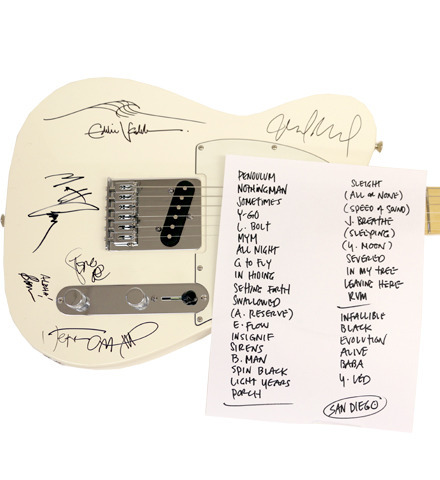 Eddie Vedder
ALOHA,
PENDULUM
NOTHINGMAN
SOMETIMES
Y-GO
L. BOLT
MYM
ALL NIGHT
G TO FLY
IN HIDING
SETTING FORTH
SWALLOWED
(A. RESERVE)
E. FLOW
INSIGNIF
SIRENS
B. MAN
SPIN BLACK
LIGHT YEARS
PORCH
SLEIGHT
(ALL OR NONE)
(SPEED OF SOUND)
J. BREATHE
(SLEEPING)
(Y. MOON)
SEVERED
IN MY TREE
LEAVING HERE
RVM
INFALLIBLE
BLACK
EVOLUTION
ALIVE
BABA
Y. LED
SAN DIEGO